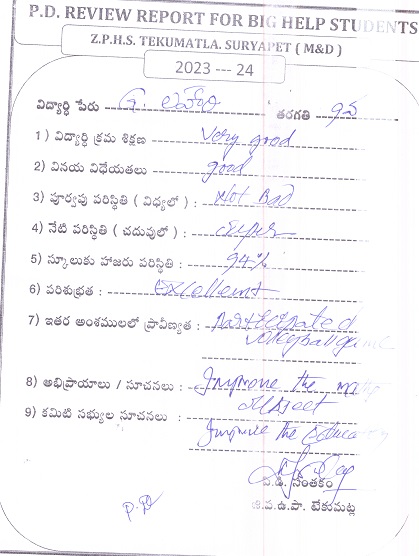 P.D. REVIEW REPORT FOR BIG HELP STUDENTS
Z.P.H.S. TEKUMATLA. SURYAPET ( M&D )
2023 --- 24
విద్యార్ధి పేరు తరగతి
1 ) విద్యార్ధి క్రమ శిక్షణ Very good
2) వినయ విధేయతలు good
3) పూర్వపు పరిస్థితి ( విధ్యలో ) : Not Bad
4) నేటి పరిస్థితి ( చదువులో ) : super
5) స్కూలుకు హాజరు పరిస్థితి : 94%
6) పరిశుభ్రత : Excellent
7) ఇతర అంశములలో ప్రావీణ్యత : participated
Volleyball game
8) అభిప్రాయాలు / సూచనలు : Improve the
9) కమిటి సభ్యుల సూచనలు
Improve the
పి.డి. సంతకం
జి.ప.ఉ.పా. టేకుమట్ల
P.D